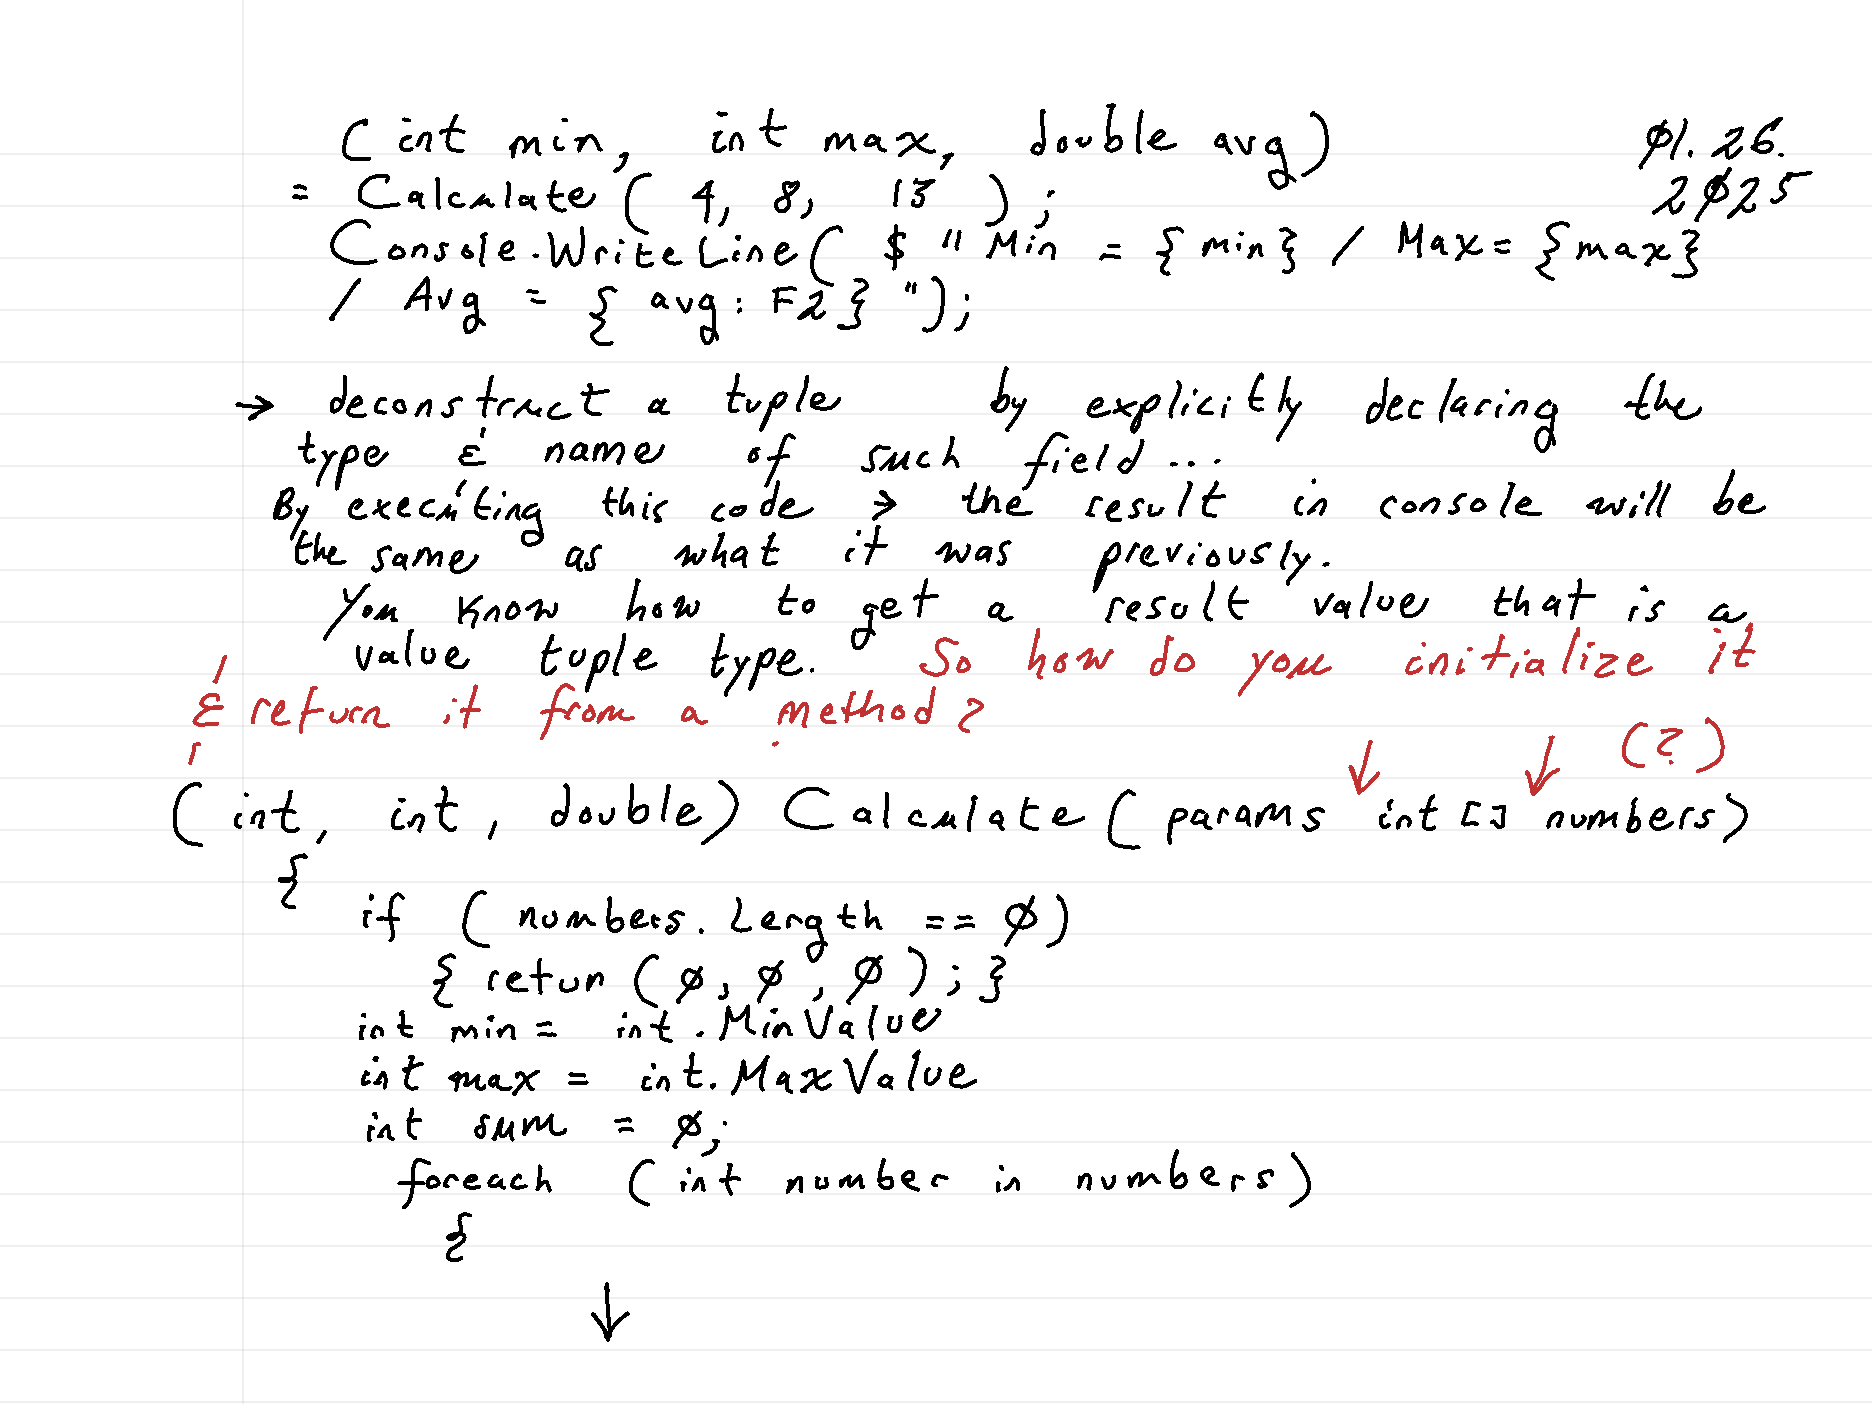 ( int min, int max, double avg) Ø1.26.
= Calculate ( 4, 8, 13 ) ; 2Ø25
Console.WriteLine( $ "Min = {min} / Max = {max}
/ Avg = { avg : F2 } ");
→ deconstruct a tuple by explicitly declaring the
type & name of such field ...
By executing this code → the result in console will be
the same as what it was previously.
You know how to get a result value that is a
value tuple type. So how do you initialize it
& return it from a method?
↓ ↓ (?)
( int, int, double) Calculate ( params int [] numbers)
{
if ( numbers. Length == Ø)
{ retun ( Ø, Ø, Ø ) ; }
int min = int . MinValue
int max = int. MaxValue
int sum = Ø;
foreach ( int number in numbers)
{
↓